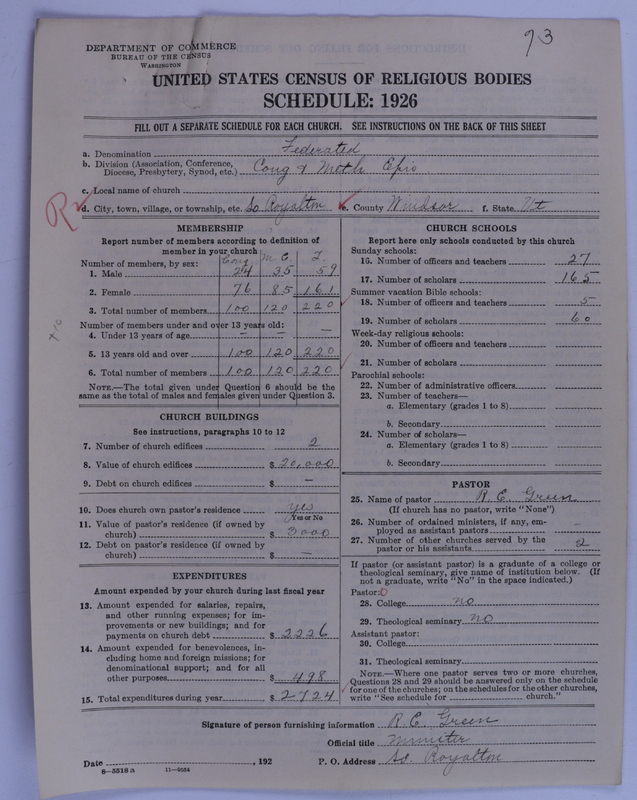 93
DEPARTMENT OF COMMERCE
BUREAU OF THE CENSUS
WASHINGTON
UNITED STATES CENSUS OF RELIGIOUS BODIES
SCHEDULE: 1926
FILL OUT A SEPARATE SCHEDULE FOR EACH CHURCH. SEE INSTRUCTIONS ON THE BACK OF THIS SHEET
a. Denomination Federated
b. Division (Association, Conference, Diocese, Presbytery, Synod, etc.) Cong & Meth Epis
c. Local name of church
d. City, town, village, or township, etc. So Royalton e. County Windsor f. State Vt
MEMBERSHIP
Report number of members according to definition of
member in your church
Number of members, by sex: Cong M. E. F.
1. Male 24 35 59
2. Female 76 85 161
3. Total number of members 100 120 220
Number of members under and over 13 years old:
4. Under 13 years of age — — —
5. 13 years old and over 100 120 220
6. Total number of members 100 120 220
NOTE.—The total given under Question 6 should be the
same as the total of males and females given under Question 3.
CHURCH BUILDINGS
See instructions, paragraphs 10 to 12
7. Number of church edifices 2
8. Value of church edifices $ 20,000
9. Debt on church edifices $ —
10. Does church own pastor's residence yes
Yes or No
11. Value of pastor's residence (if owned by
church) $ 3000
12. Debt on pastor's residence (if owned by
church) $ —
EXPENDITURES
Amount expended by your church during last fiscal year
13. Amount expended for salaries, repairs,
and other running expenses; for im-
provements or new buildings; and for
payments on church debt $ 2226
14. Amount expended for benevolences, in-
cluding home and foreign missions; for
denominational support; and for all
other purposes $ 498
15. Total expenditures during year $ 2724
CHURCH SCHOOLS
Report here only schools conducted by this church
Sunday schools:
16. Number of officers and teachers 27
17. Number of scholars 165
Summer vacation Bible schools:
18. Number of officers and teachers 5
19. Number of scholars 60
Week-day religious schools:
20. Number of officers and teachers
21. Number of scholars
Parochial schools:
22. Number of administrative officers
23. Number of teachers—
a. Elementary (grades 1 to 8)
b. Secondary
24. Number of scholars—
a. Elementary (grades 1 to 8)
b. Secondary
PASTOR
25. Name of pastor R. E. Green
(If church has no pastor, write "None")
26. Number of ordained ministers, if any, em-
ployed as assistant pastors -
27. Number of other churches served by the
pastor or his assistants 2
If pastor (or assistant pastor) is a graduate of a college or
theological seminary, give name of institution below. (If
not a graduate, write "No" in the space indicated.)
Pastor:
28. College no
29. Theological seminary no
Assistant pastor:
30. College
31. Theological seminary
NOTE.—Where one pastor serves two or more churches,
Questions 28 and 29 should be answered only on the schedule
for one of the churches; on the schedules for the other churches,
write "See schedule for church."
Signature of person furnishing information R E Green
Official title Minister
Date , 192 P. O. Address So Royalton
8—5518a 11—9034